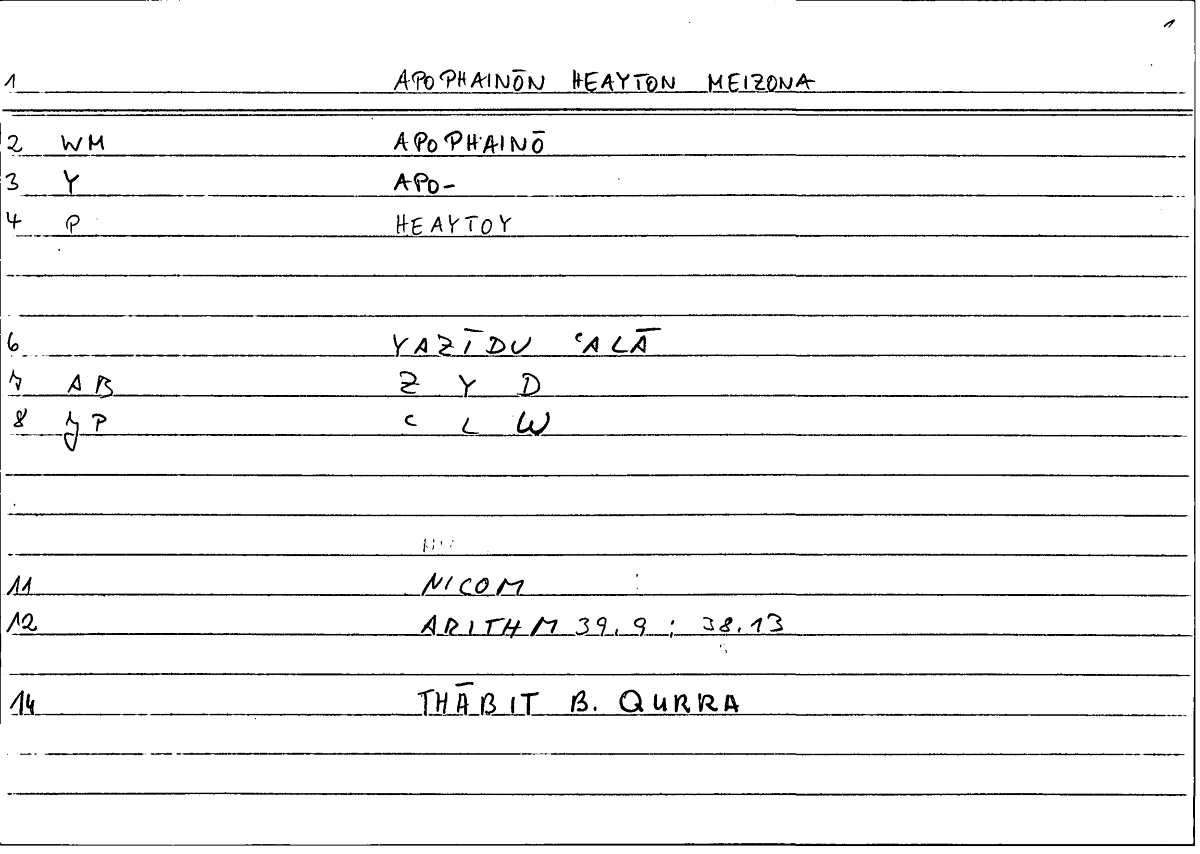 1
1 APOPHAINŌN HEAYTON MEIZONA
2 WM APOPHAINŌ
3 Y APO-
4 P HEAYTOY
6 YAZĪDU ʿALĀ
7 AB Z Y D
8 P ʿ L W
11 NICOM
12 ARITHM 39.9 ; 38.13
14 THĀBIT B. QURRA